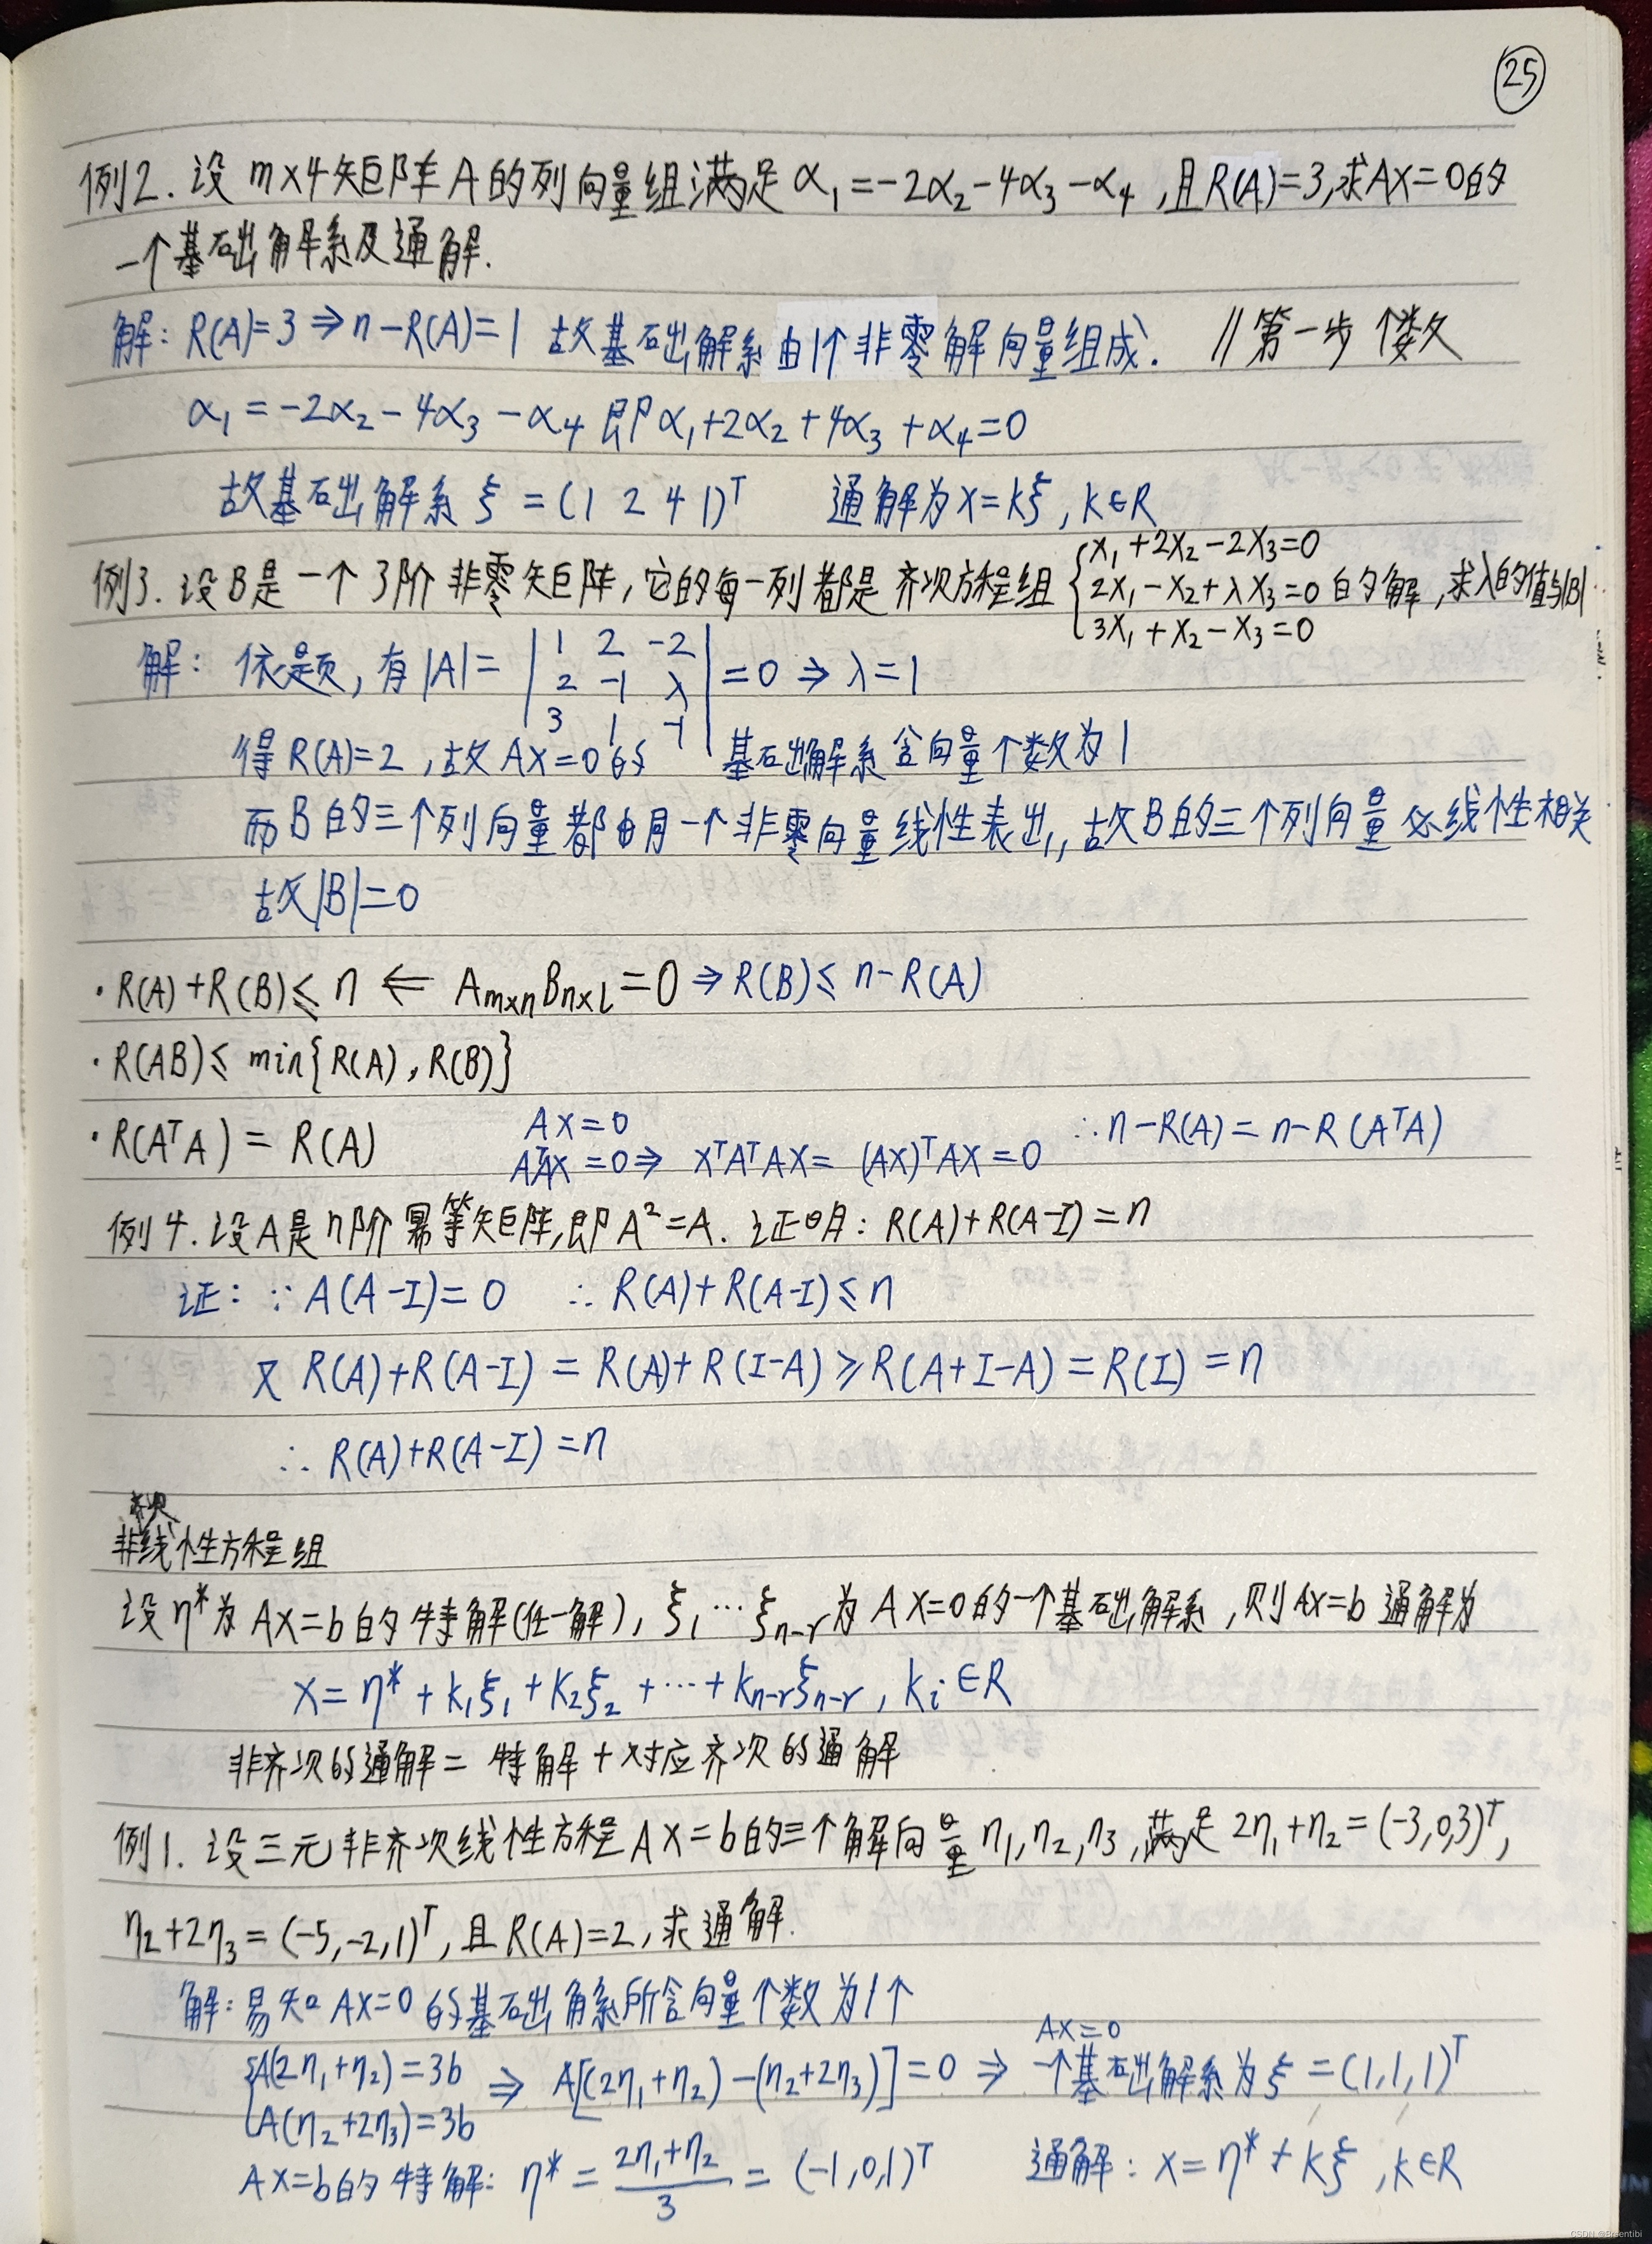 25
例2.设m×4矩阵A的列向量组满足α₁=-2α₂-4α₃-α₄,且R(A)=3,求AX=0的
一个基础解系及通解.
解:R(A)=3⇒n-R(A)=1 故基础解系由1个非零解向量组成. //第一步 个数
α₁=-2α₂-4α₃-α₄即α₁+2α₂+4α₃+α₄=0
故基础解系ξ=(1 2 4 1)ᵀ 通解为X=kξ,k∈R
例3.设B是一个3阶非零矩阵,它的每一列都是齐次方程组{x₁+2x₂-2x₃=0
2x₁-x₂+λx₃=0的解,求λ的值与|B|
3x₁+x₂-x₃=0
解:依题,有|A|=|1 2 -2
2 -1 λ|=0⇒λ=1
3 1 -1
得R(A)=2,故AX=0的 基础解系含向量个数为1
而B的三个列向量都由同一个非零向量线性表出,故B的三个列向量必线性相关
故|B|=0
·R(A)+R(B)≤n⇐AₘₓₙBₙₓₗ=0⇒R(B)≤n-R(A)
·R(AB)≤min{R(A),R(B)}
·R(AᵀA)=R(A) AX=0 ∴n-R(A)=n-R(AᵀA)
AᵀAX=0⇒XᵀAᵀAX=(AX)ᵀAX=0
例4.设A是n阶幂等矩阵,即A²=A.证明:R(A)+R(A-I)=n
证:∵A(A-I)=0 ∴R(A)+R(A-I)≤n
又R(A)+R(A-I)=R(A)+R(I-A)≥R(A+I-A)=R(I)=n
∴R(A)+R(A-I)=n
齐次
非线性方程组
设η*为AX=b的特解(任一解),ξ₁…ξₙ₋ᵣ为AX=0的一个基础解系,则AX=b通解为
X=η*+k₁ξ₁+k₂ξ₂+…+kₙ₋ᵣξₙ₋ᵣ,kᵢ∈R
非齐次的通解=特解+对应齐次的通解
例1.设三元非齐次线性方程AX=b的三个解向量η₁,η₂,η₃,满足2η₁+η₂=(-3,0,3)ᵀ,
η₂+2η₃=(-5,-2,1)ᵀ,且R(A)=2,求通解.
解:易知AX=0的基础出解系所含向量个数为1个
AX=0
{A(2η₁+η₂)=3b ⇒A[(2η₁+η₂)-(η₂+2η₃)]=0⇒一个基础解系为ξ=(1,1,1)ᵀ
A(η₂+2η₃)=3b
AX=b的特解:η*=(2η₁+η₂)/3=(-1,0,1)ᵀ 通解:X=η*+kξ,k∈R